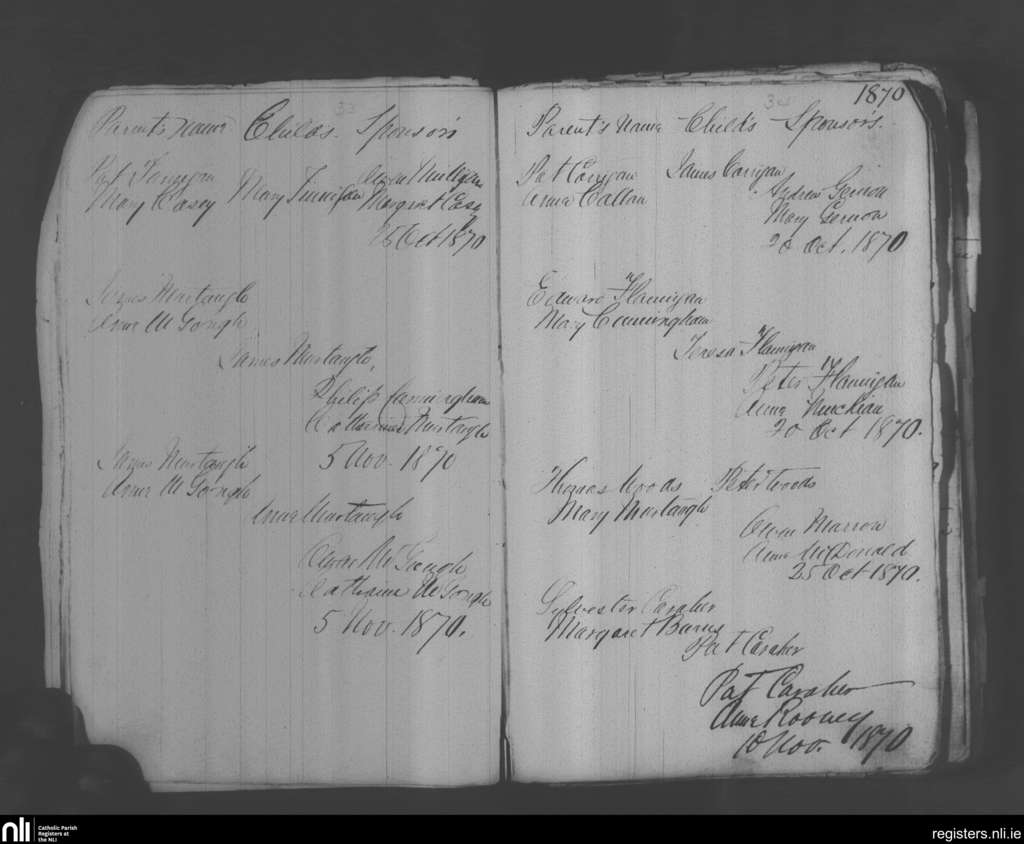 33
Parent's Name Child's Sponsors
Pat Finnigan Mary Finnigan Owen Mulligan
Mary Casey Margret Casy
25 Oct 1870
James Murtaugh
Anne McGough
James Murtaugh,
Philip Cunningham
Catharine Murtaugh
5 Nov. 1870
James Murtaugh
Anne McGough
Anne Murtaugh
Owen McGough
Catharine McGough
5 Nov. 1870.
34
1870
Parent's Name Child's Sponsors.
Pat Corrigan James Corrigan
Anne Callan Andrew Gernon
Mary Gernon
20 Oct. 1870
Edward Flanigan
Mary Cunningham
Teresa Flanigan
Peter Flanigan
Anne
20 Oct 1870.
Thomas Woods Peter Woods
Mary Murtaugh
Owen Marron
Anne McDonald
25 Oct 1870.
Sylvester Caraher
Margaret Burns
Pat Caraher
Pat Caraher
Anne Rooney
10 Nov. 1870
nli
Catholic Parish
Registers at
the NLI
registers.nli.ie